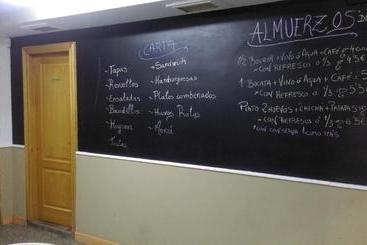 CARTA
~ Tapas
~ Revueltos
~ Ensaladas
~ Bocadillos
~ Tostas
~ Sandwich
~ Hamburguesas
~ Platos combinados
~ Huevos Rotos
~ Menú
ALMUERZOS
1/2 BOCATA + VINO ó AGUA + CAFE
- CON REFRESCO ó 1/3
1 BOCATA + VINO ó AGUA + CAFE
- CON REFRESCO ó 1/3
PLATO 2 HUEVOS + CHICHA + PATATAS
- CON REFRESCO ó 1/3
* CON CONSERVA